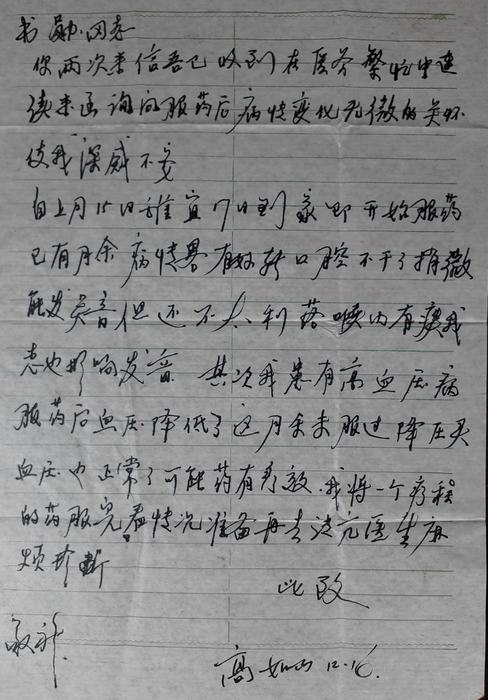 书勋同志
你两次来信吾已收到在医务繁忙中连
续来函询问服药后病情变化无微的关怀
使我深感不安
自上月15日离宜17日到家即开始服药
已有月余病情略有好转口腔不干了稍微
能发点音但还不太利落喉内有痰我
想也影响发音 其次我患有高血压病
服药后血压降低了这月余未服过降压灵
血压也正常了可能药有多效.我将一个疗程
的药服完看情况准备再去读元医生麻
烦诊断
此致
敬礼
高如山 12.16.